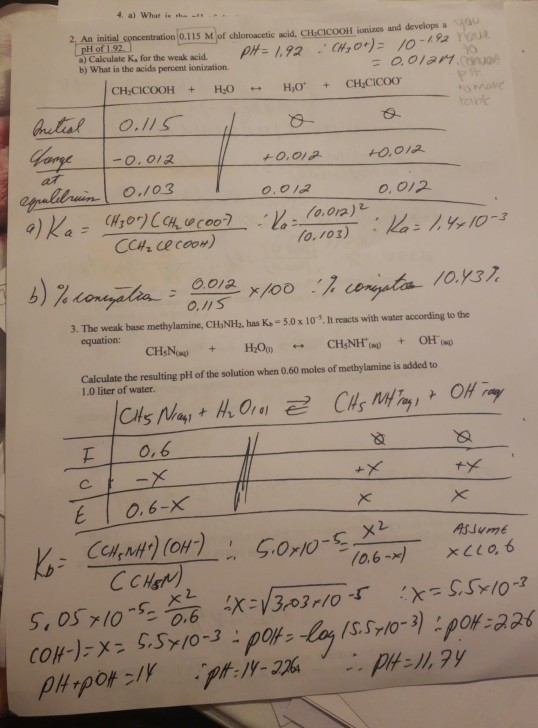 4. a) What is
2. An initial concentration 0.115 M of chloroacetic acid, CH₂ClCOOH ionizes and develops a
pH of 1.92.
a) Calculate Kₐ for the weak acid.
b) What is the acids percent ionization.
PH = 1.92 ∴ (H₃O⁺) = 10⁻¹·⁹²
= 0.012M
you
have
to
pH
to make
table
CH₂ClCOOH + H₂O ↔ H₃O⁺ + CH₂ClCOO⁻
Initial 0.115 0 0
Change -0.012 +0.012 +0.012
at
equilibrium 0.103 0.012 0.012
a) Ka = (H₃O⁺)(CH₂ClCOO⁻) / (CH₂ClCOOH) ∴ Ka = (0.012)² / (0.103) ∴ Ka = 1.4×10⁻³
b) % ionization = 0.012 / 0.115 × 100 ∴ % ionization 10.43%
3. The weak base methylamine, CH₃NH₂, has K_b = 5.0 x 10⁻⁵. It reacts with water according to the
equation:
CH₅N(aq) + H₂O(l) ↔ CH₅NH⁺(aq) + OH⁻(aq)
Calculate the resulting pH of the solution when 0.60 moles of methylamine is added to
1.0 liter of water.
CH₅N(aq) + H₂O(l) ⇌ CH₅NH⁺(aq) + OH⁻(aq)
I 0.6 0 0
C -x +x +x
E 0.6-x x x
K_b = (CH₅NH⁺)(OH⁻) / (CH₅N) ∴ 5.0×10⁻⁵ = x² / (0.6-x) ASSUME
x<<0.6
5.05×10⁻⁵ = x² / 0.6 ∴ x = √3.03×10⁻⁵ ∴ x = 5.5×10⁻³
(OH⁻) = x = 5.5×10⁻³ ∴ pOH = -log(5.5×10⁻³) ∴ pOH = 2.26
pH + pOH = 14 ∴ pH = 14-2.26 ∴ pH = 11.74